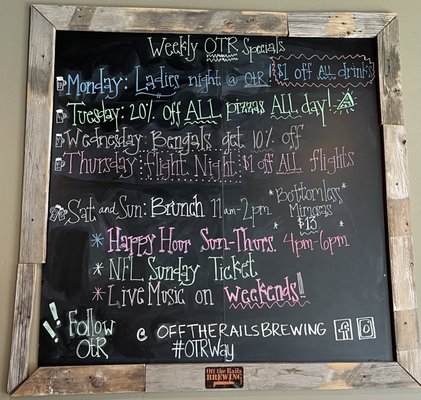 Weekly OTR Specials
Monday: Ladies night @ OTR! $1 off ALL drinks
Tuesday: 20% off ALL pizzas ALL day!
Wednesday: Bengals get 10% off
Thursday: flight Night $1 off ALL flights
Sat and Sun: Brunch 11am-2pm
*Bottomless*
Mimosas
$13
* Happy Hour Sun-Thurs. 4pm-6pm
* NFL Sunday Ticket
* Live Music on weekends!!
Follow OTR
@ OFFTHERAILSBREWING
#OTRWay
Off the Rails
BREWING